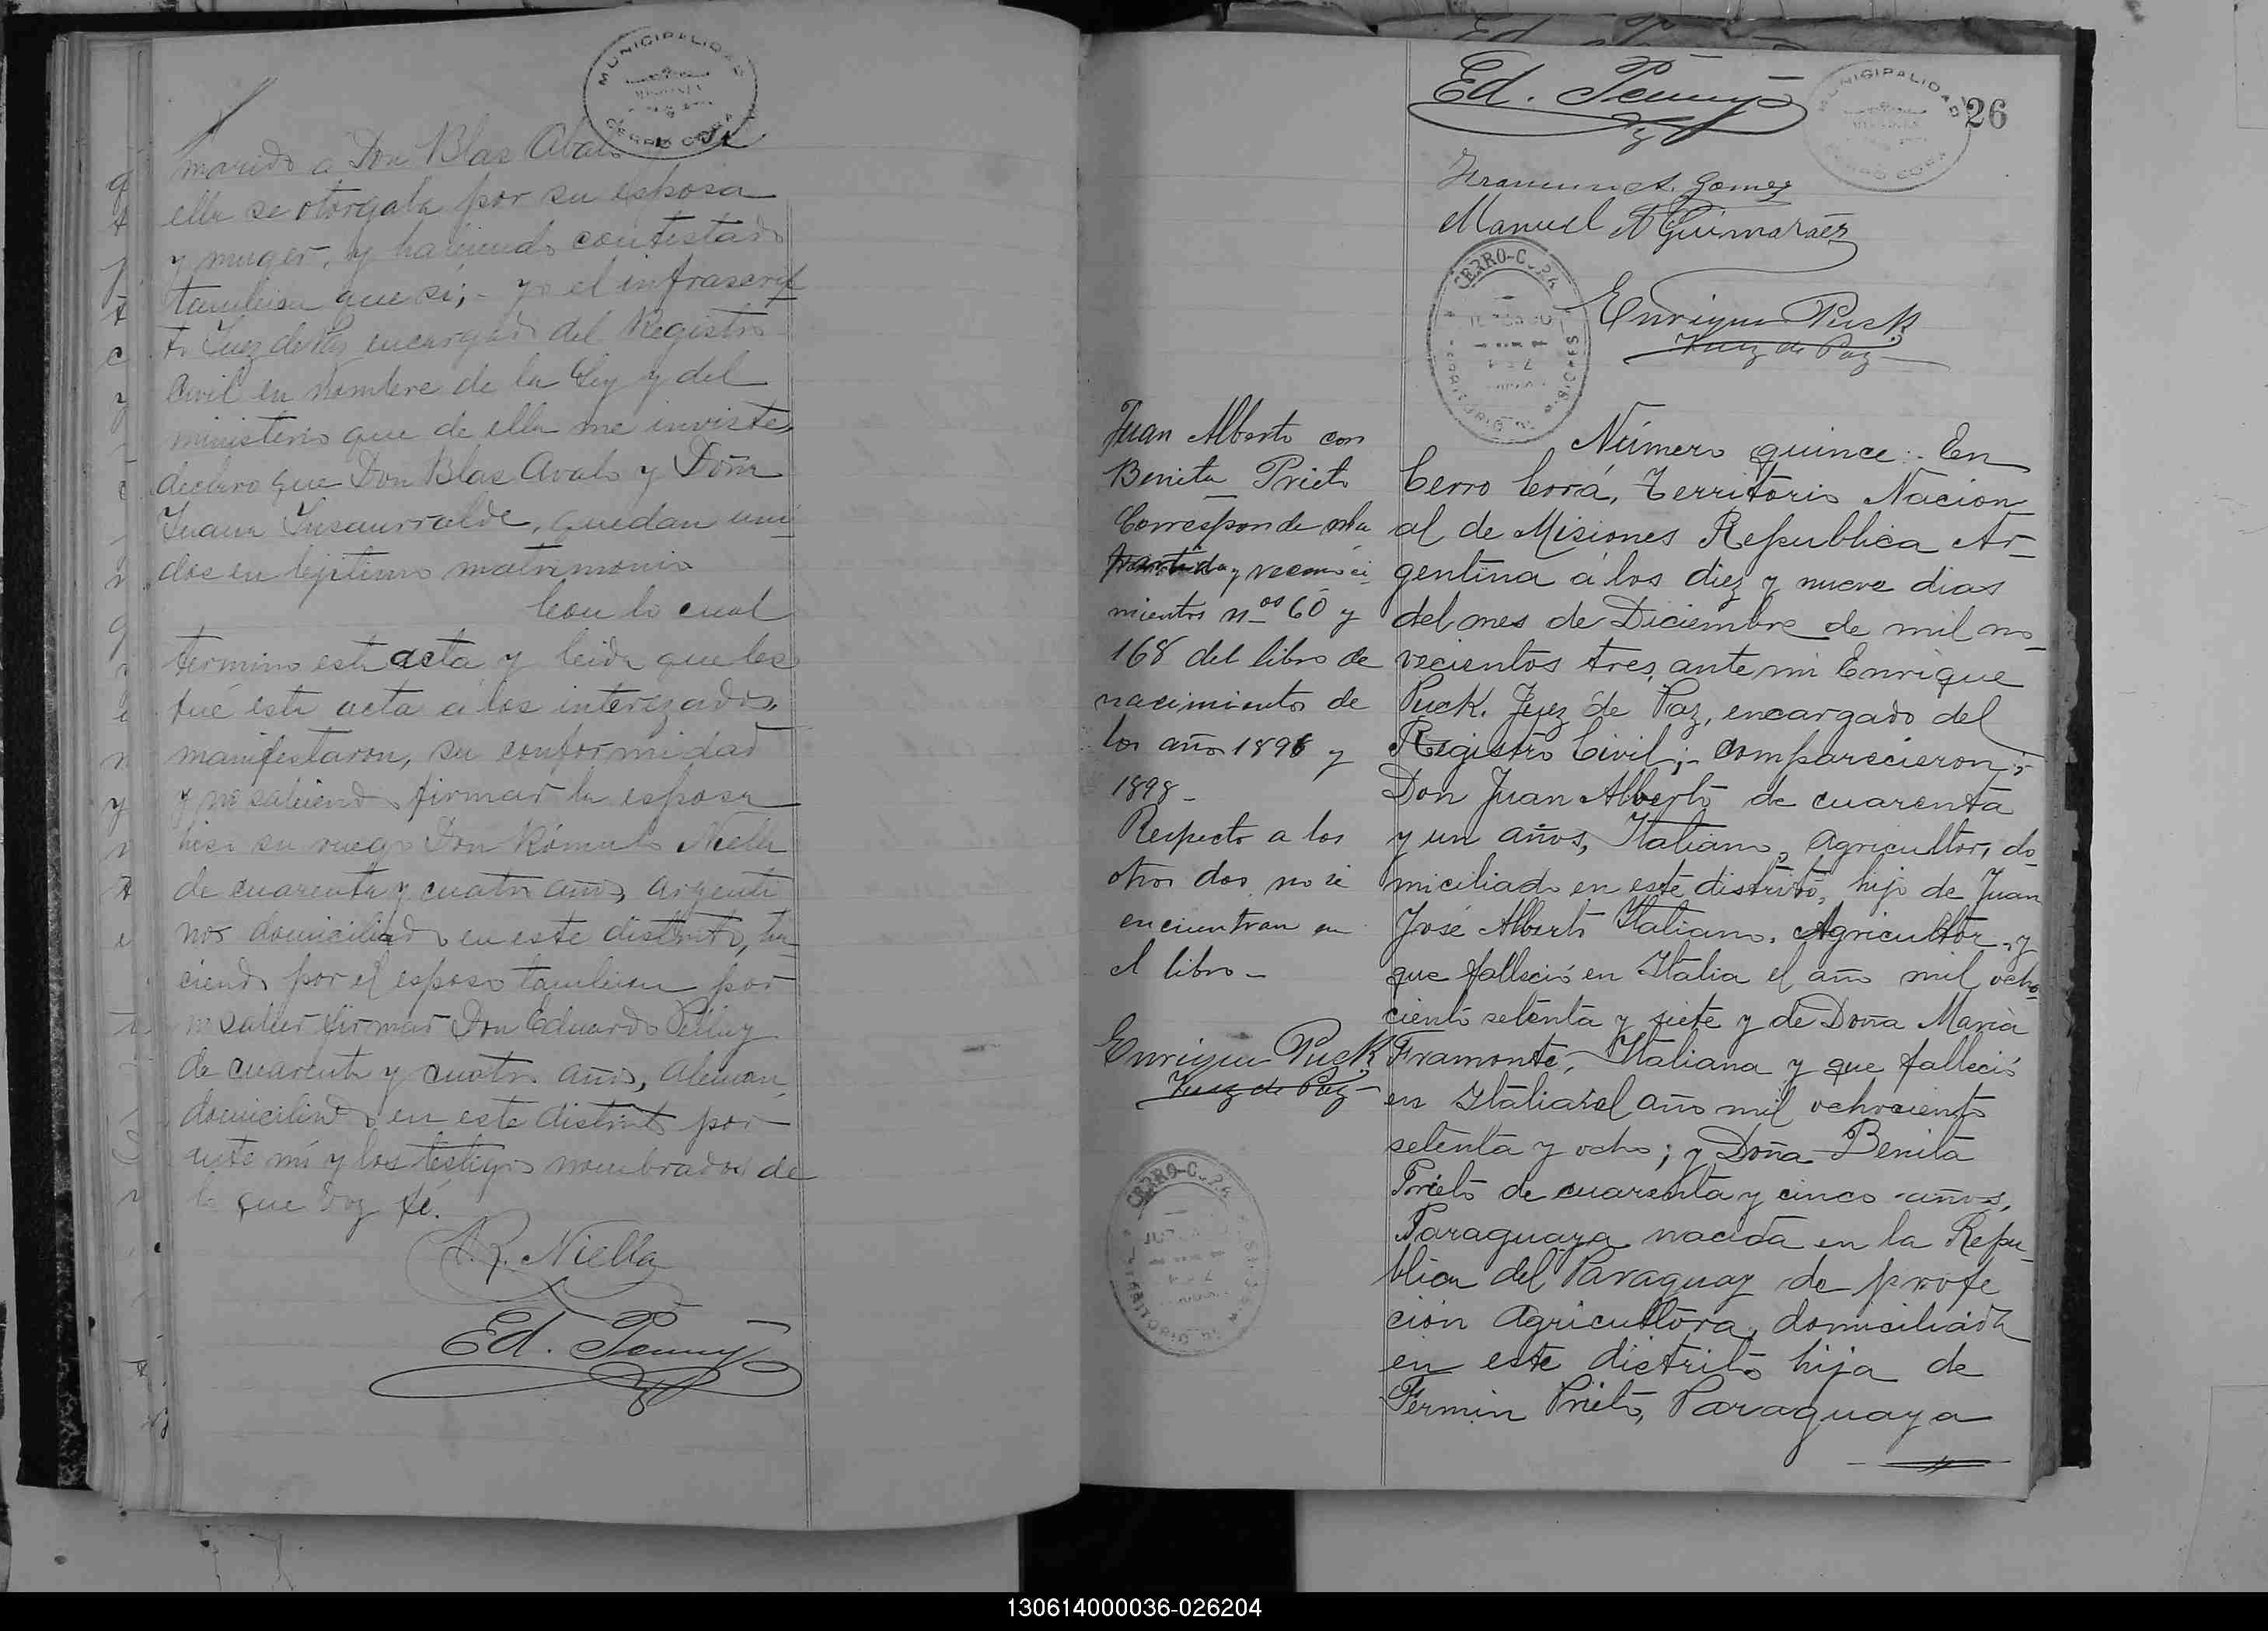 MUNICIPALIDAD
MISIONES
CERRO CORA
marido a Don Blas Abalo
ella se otorgaba por su esposa
y muger, y haciendo contestado
tambien que si; - yo el infrascrip
to Juez de Paz encargado del Registro
Civil en nombre de la Ley y del
ministerio que de ella me inviste,
declaro que Don Blas Avalo y Doña
Juana Insaurralde, quedan uni
dos en lejitimo matrimonio
Con lo cual
termino esta acta y leida que les
fué esta acta a los interezados,
manifestaron, su conformidad
y no sabiendo firmar la esposa
hiso su ruego Don Rómulo Niella
de cuarenta y cuatro años, argenti
nos domiciliado en este distrito, ha
ciendo por el esposo tambien por
no saber firmar Don Eduardo
de cuarenta y cuatro años, Aleman
domiciliado en este distrito por
ante mi y los testigos nombrados de
lo que doy fé.
R. Niella
Ed.
Ed.
MUNICIPALIDAD
CERRO CORA
26
Francisco A. Gomez
Manuel A Guimaraez
CERRO-CORA
Enrique Puck
Juez de Paz
Juan Alberto con
Benita Prieto
Corresponde a la
partida y reconoci
mientos nos 60 y
168 del libro de
nacimientos de
los años 1896 y
1898 -
Respecto a los
otros dos no se
encuentran en
el libro -
Enrique Puck
Juez de Paz
CERRO-CORA
TERRITORIO DE
Número quince. - En
Cerro Corá, Territorio Nacion
al de Misiones Republica Ar-
gentina á los diez y nueve dias
del mes de Diciembre de mil no-
vecientos tres, ante mi Enrique
Puck. Juez de Paz, encargado del
Registro Civil; - comparecieron:
Don Juan Alberto de cuarenta
y un años, Italiano, Agricultor, do-
miciliado en este distrito, hijo de Juan
José Alberto Italiano, Agricultor, y
que falleció en Italia el año mil ocho
ciento setenta y siete y de Doña Maria
Framonte, Italiana y que falleció
en Italia el año mil ochociento
setenta y ocho; y Doña Benita
Prieto de cuarenta y cinco años,
Paraguaya nacida en la Repu-
blica del Paraguay de profe
ción Agricultora, domiciliada
en este distrito hija de
Fermin Prieto, Paraguaya
130614000036-026204